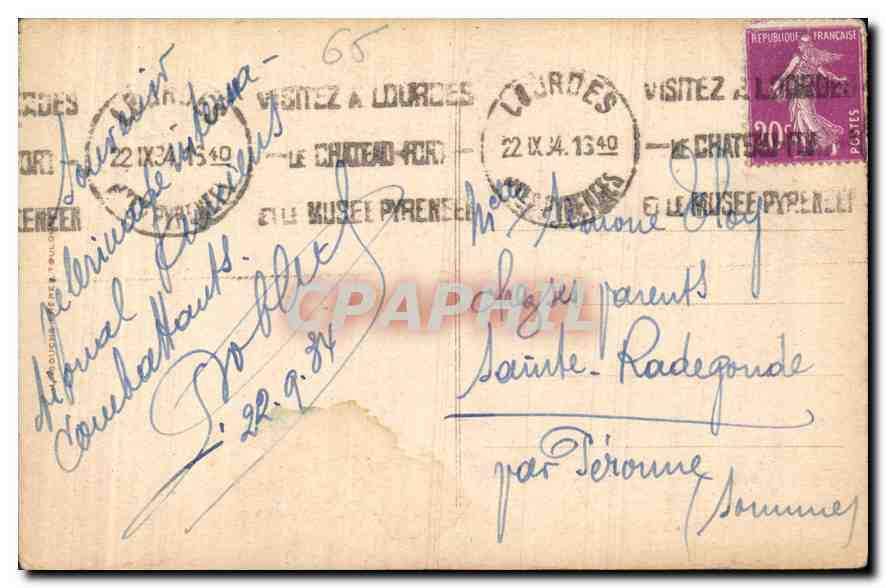 65
Souvenir
pélerinage interna-
tional Anciens
Combattants.
22.9.34
LOURDES
22 IX 34. 16 40
PYRENEES
VISITEZ A LOURDES
LE CHATEAU-FORT
ET LE MUSEE PYRENEEN
LOURDES
22 IX 34. 16 40
HTES PYRENEES
VISITEZ A LOURDES
LE CHATEAU-FORT
ET LE MUSEE PYRENEEN
REPUBLIQUE FRANÇAISE
20c
POSTES
Melle Simone Oloy
chez ses parents
Sainte-Radegonde
par Péronne
(Somme)
CPAPHIL